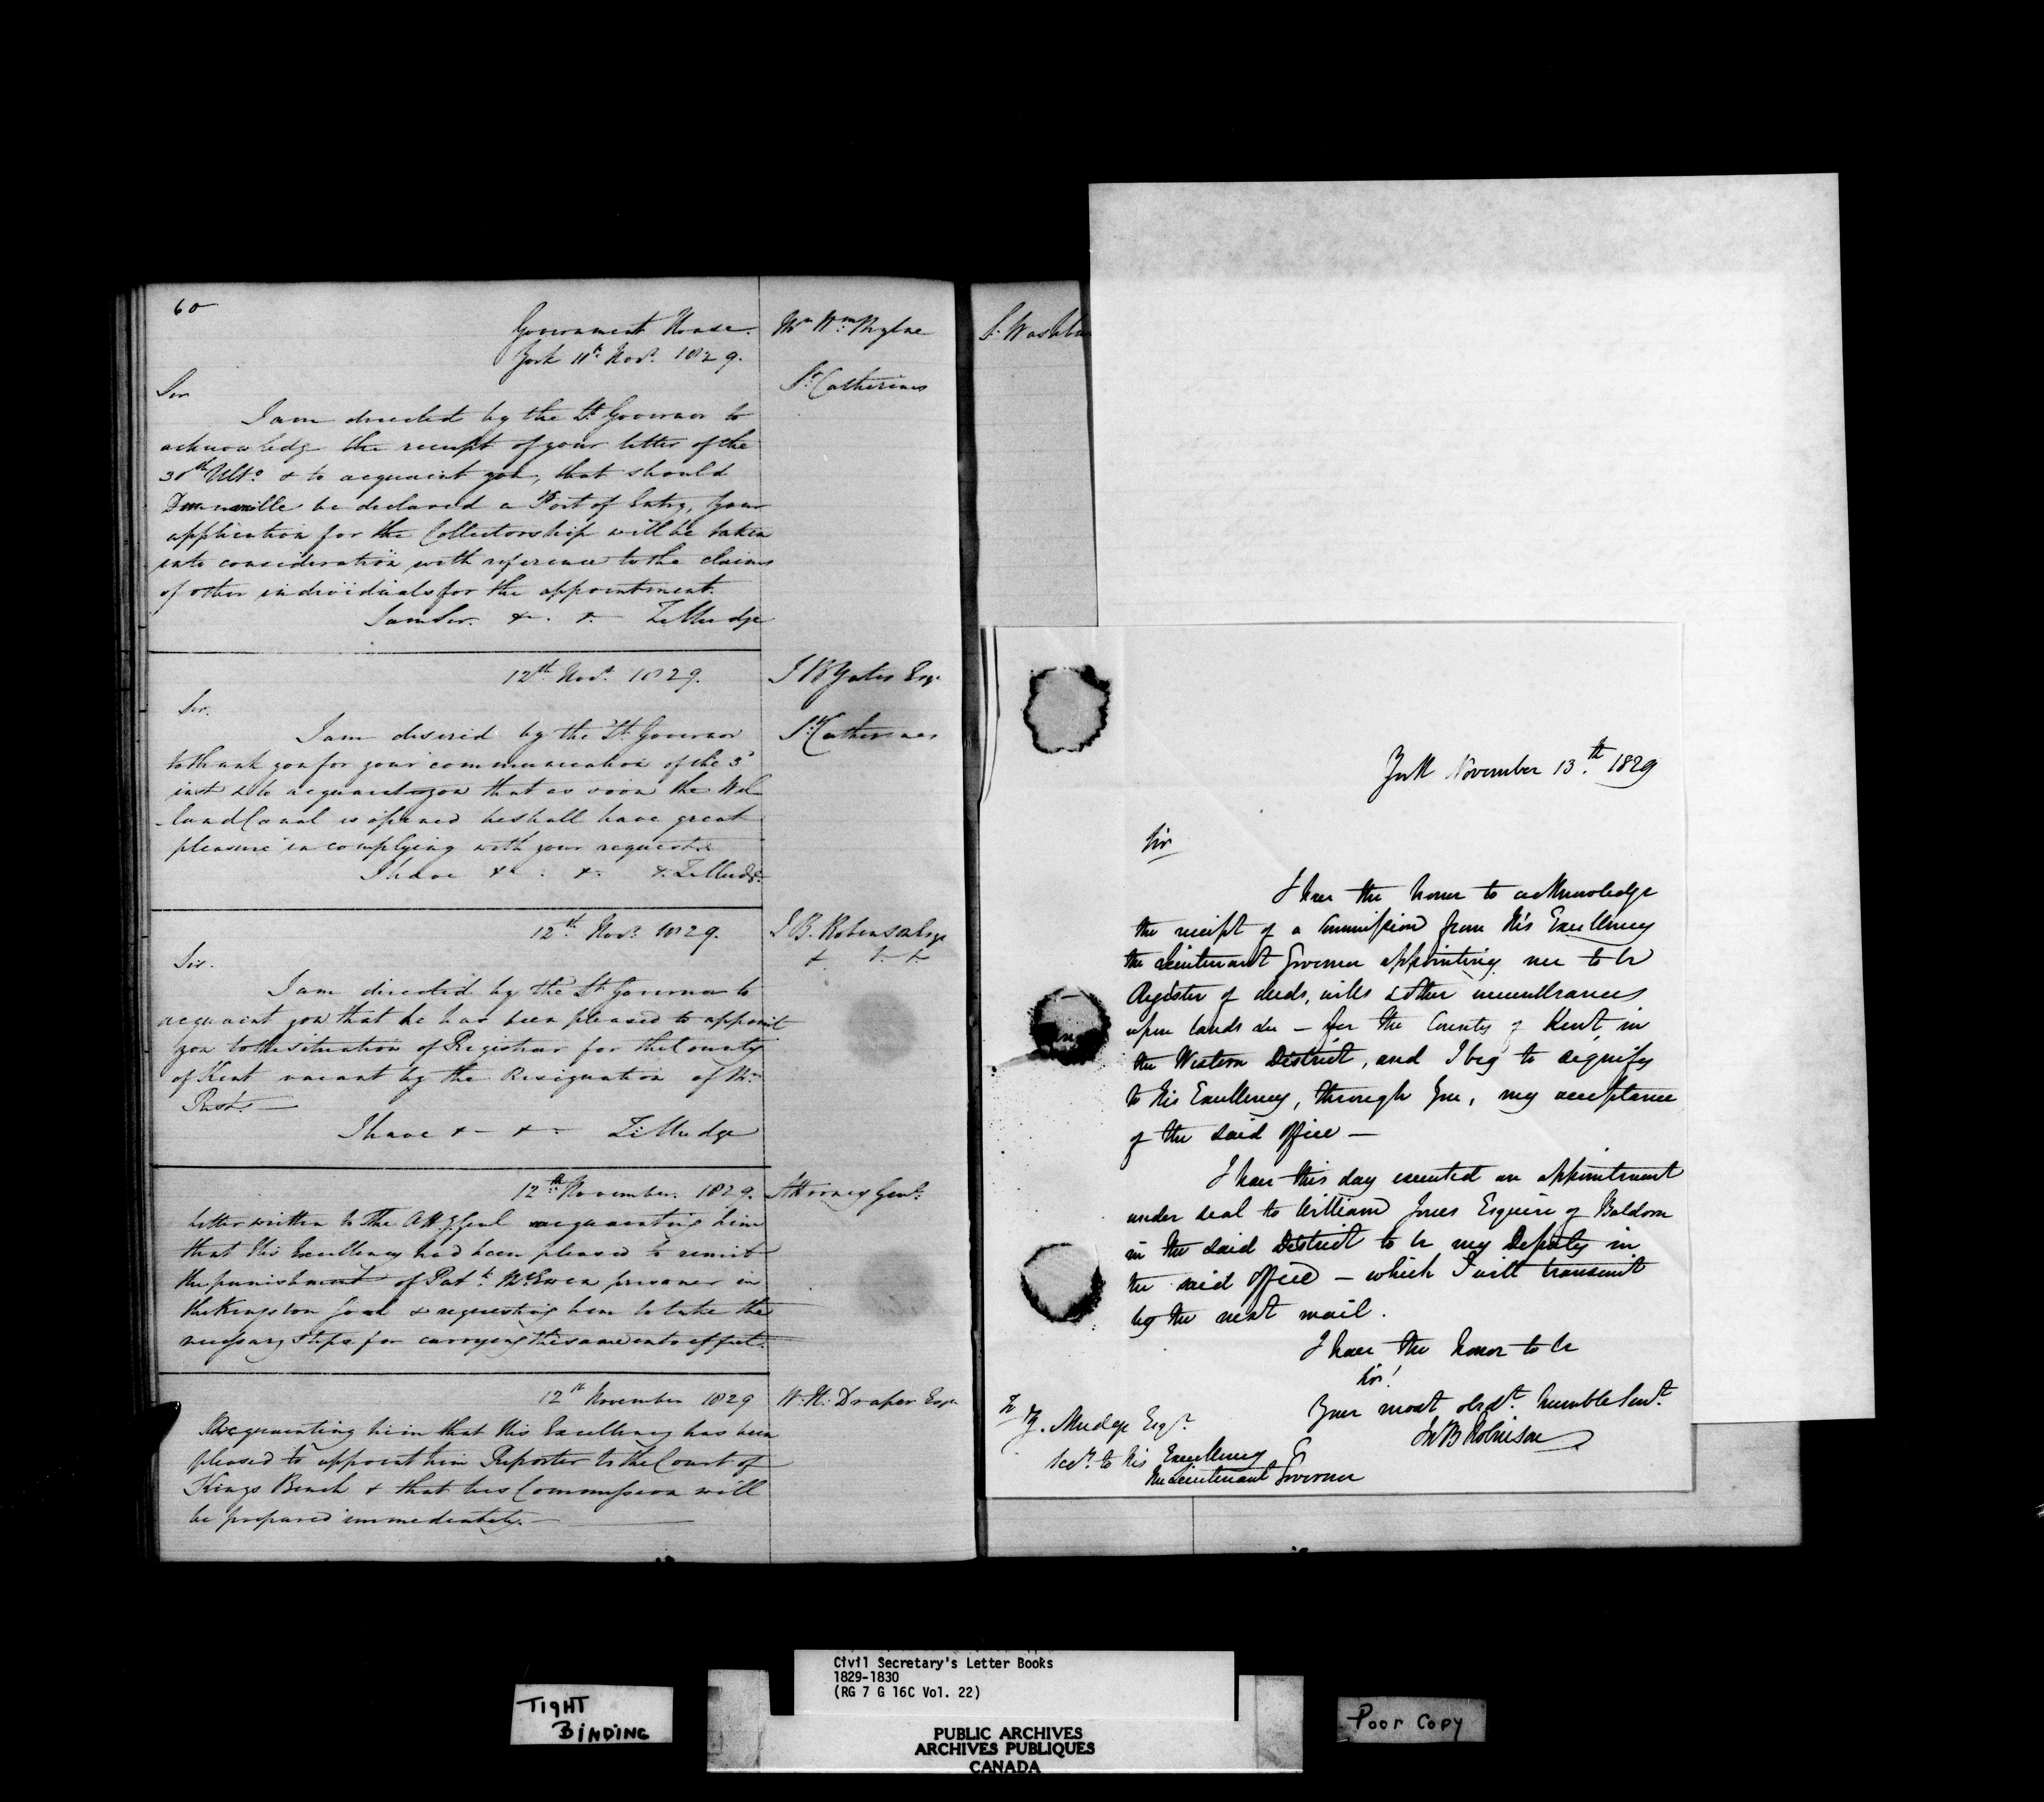 60
Government House.
York 11th Novr. 1829.
Mr. Wm.
St. Catherines
Sir
I am directed by the Lt. Governor to
acknowledge the receipt of your letter of the
30th Ulto. & to acquaint you, that should
Dunnville be declared a Port of Entry, your
application for the Collectorship will be taken
into consideration with reference to the claims
of other individuals for the appointment.
I am Sir. &. &. Z Mudge
12th Novr. 1829.
J B Yates Esqr.
St. Catherines
Sir.
I am desired by the Lt. Governor
to thank you for your communication of the 5
inst & to acquaint you that as soon the Wel
-land Canal is opened he shall have great
pleasure in complying with your request.
I have &. &. &. Z Mudge
12th. Novr. 1829.
J B. Robinson Esqr
& & &
Sir.
I am directed by the Lt. Governor to
acquaint you that he has been pleased to appoint
you to the situation of Registrar for the County
of Kent vacant by the Resignation of Mr.
I have &- &- Z Mudge
12th November. 1829.
Attorney Genl.
Letter written to The Atty Genl acquainting him
that His Excellency had been pleased to remit
the punishment of Patk. McEwen prisoner in
the Kingston Goal & requesting him to take the
necessary steps for carrying the same into effect.
12th November 1829
W. H. Draper Esqr
Acquainting him that His Excellency has been
pleased to appoint him Reporter to the Court of
Kings Bench & that his Commission will
be prepared immediately.
S. Washbu
York November 13.th 1829
Sir
I have the honor to acknowledge
the receipt of a Commission from His Excellency
the Lieutenant Governor appointing me to be
Register of deeds, wills & other incumbrances
upon lands &c – for the County of Kent, in
the Western District, and I beg to signify
to His Excellency, through you, my acceptance
of the said office –
I have this day executed an appointment
under seal to William Jones Esquire of Baldoon
in the said District to be my Deputy in
the said office – which I will transmit
by the next mail.
I have the honor to be
Sir!
Your most obdt. humble Servt.
Jn B Robinson
To
Z. Mudge Esqr.
Secy. to His Excellency
the Lieutenant Governor
TIGHT
BINDING
Civil Secretary's Letter Books
1829-1830
(RG 7 G 16C Vol. 22)
PUBLIC ARCHIVES
ARCHIVES PUBLIQUES
CANADA
Poor Copy